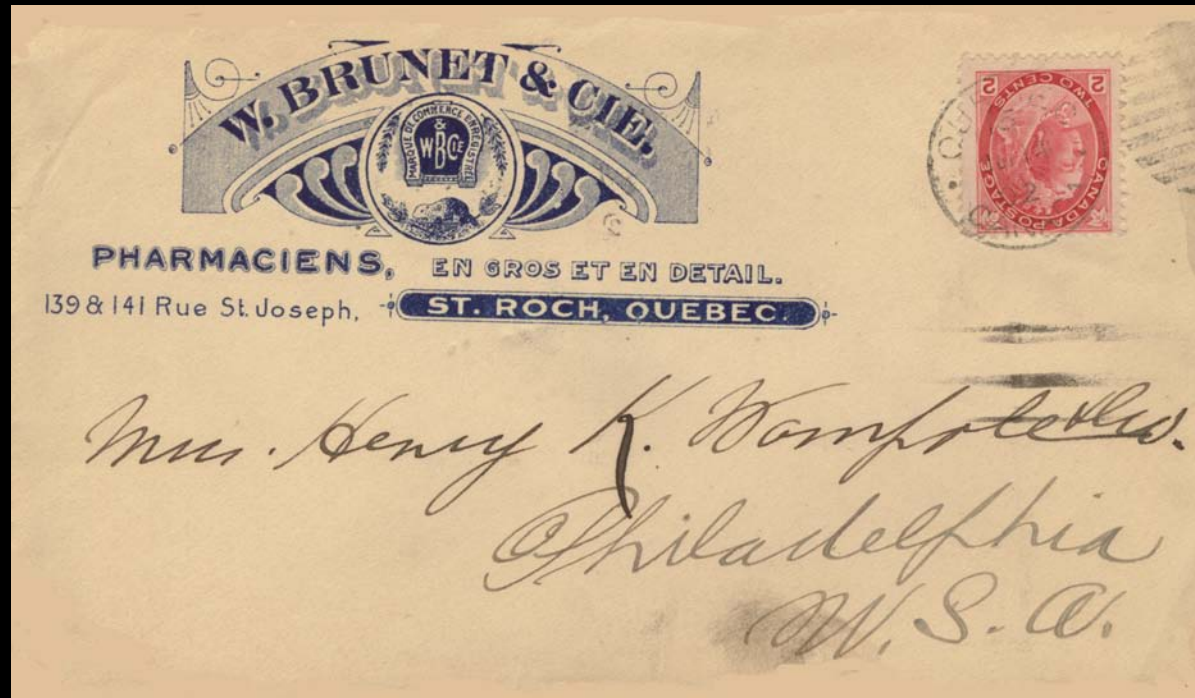 W. BRUNET & CIE.
MARQUE DE COMMERCE ENREGISTRÉE
& WBCIE
PHARMACIENS, EN GROS ET EN DETAIL.
139 & 141 Rue St. Joseph, ST. ROCH, QUEBEC.
CANADA POSTAGE
TWO CENTS
2 2
Henry K.
Philadelphia
U.S.A.